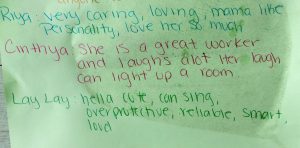 Riya: very caring, loving, mama like
personality, love her so much
Cinthya: She is a great worker
and laughs alot Her laugh
can light up a room
Lay Lay: hella cute, can sing,
overprotective, reliable, smart,
loid